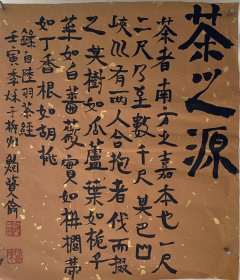 茶之源
茶者南方之嘉木也一尺
二尺乃至數十尺其巴山
峽川有兩人合抱者伐而掇
之其樹如瓜蘆葉如梔子
華如白薔薇實如栟櫚蒂
如丁香根如胡桃
錄自陸羽茶經
壬寅季秋于柳州